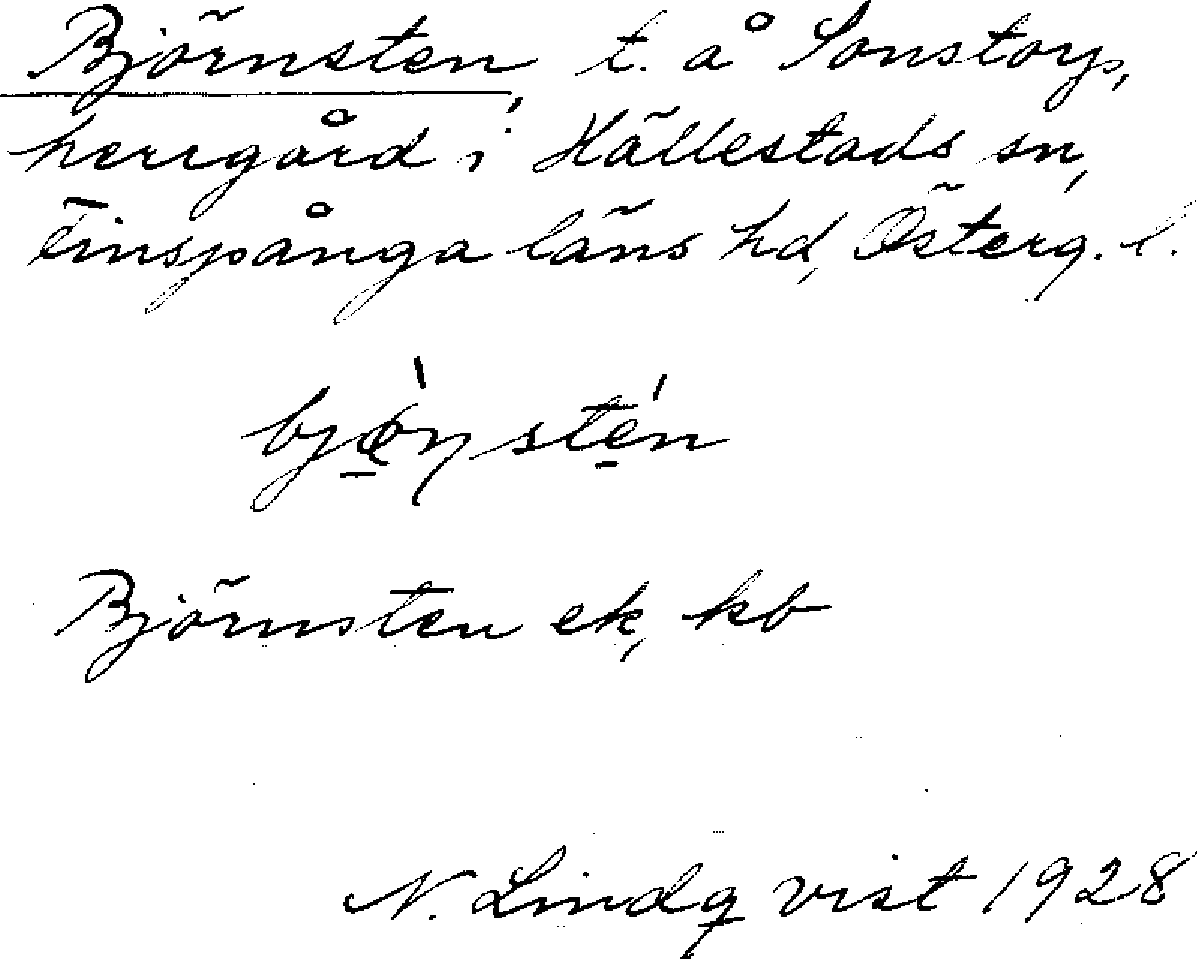 Björnsten, t. å Sonstorps,
herrgård i Hällestads sn,
Finspånga läns hd, Österg. l.
Björnsten ek, kb
N. Lindqvist 1928